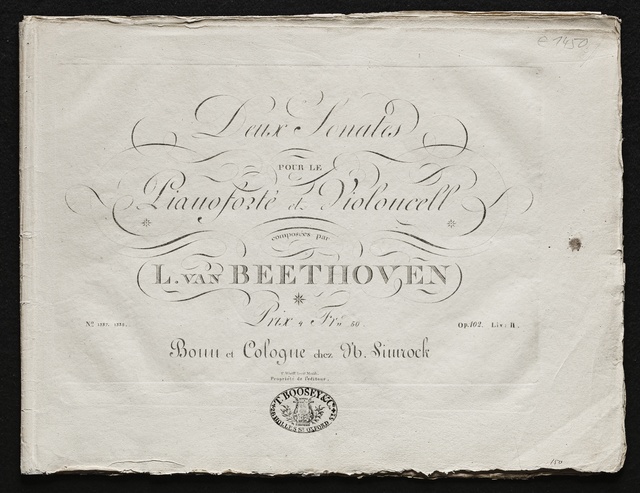 e 1450
Deux Sonates
POUR LE
Pianoforté et Violoncell
composées par
L. VAN BEETHOVEN
Prix 4 Frs 50.
Op. 102. Liv: II.
Bonn et Cologne chez N. Simrock
Propriété de l'éditeur.
T. BOOSEY & Co.
HOLLES St. OXFORD St.
150